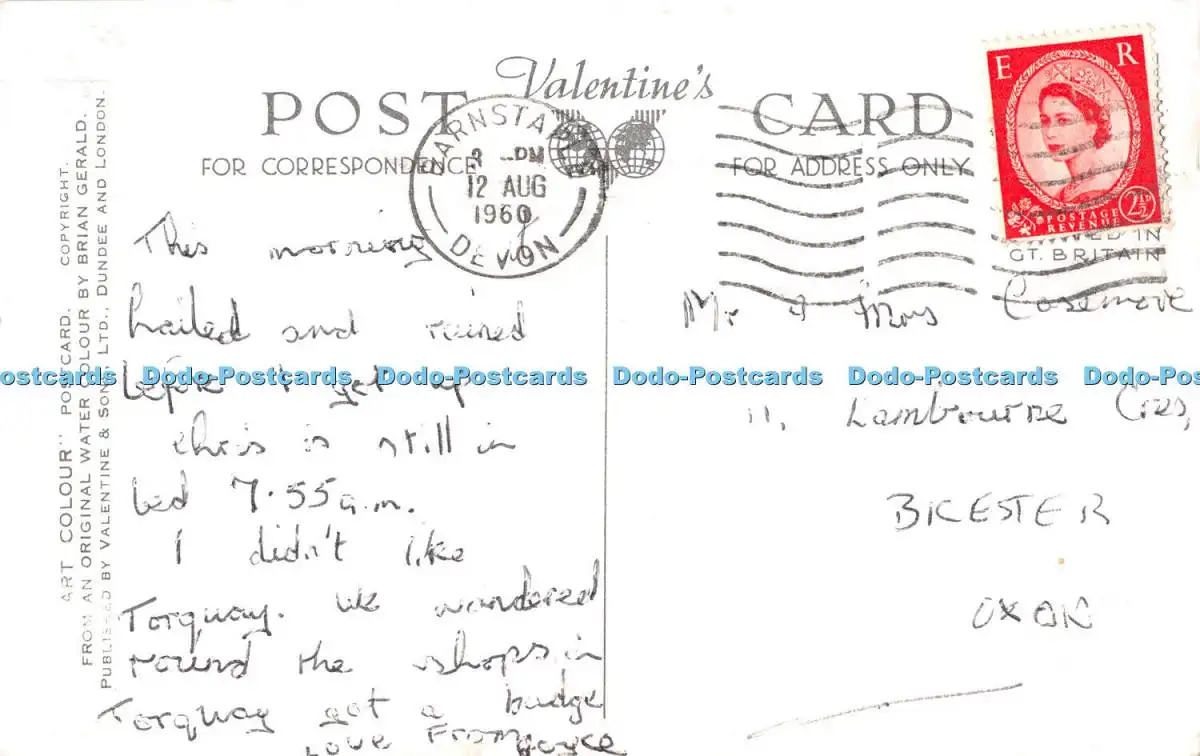 Valentine's
POST CARD
FOR CORRESPONDENCE
FOR ADDRESS ONLY
BARNSTAPLE
PM
12 AUG
1960
DEVON
E R
POSTAGE
REVENUE
2½D
IN
GT. BRITAIN
ART COLOUR" POSTCARD. COPYRIGHT.
FROM AN ORIGINAL WATER COLOUR BY BRIAN GERALD.
PUBLISHED BY VALENTINE & SONS, LTD., DUNDEE AND LONDON.
This morning
hailed and rained
before I get up
Chris is still in
bed 7.55 a.m.
I didn't like
Torquay. We wandered
round the shops in
Torquay got a budge
Love From Joyce
Mr & Mrs
11, Lambourne Cres,
BICESTER
OXON
Dodo-Postcards Dodo-Postcards Dodo-Postcards Dodo-Postcards Dodo-Postcards Dodo-Postcards